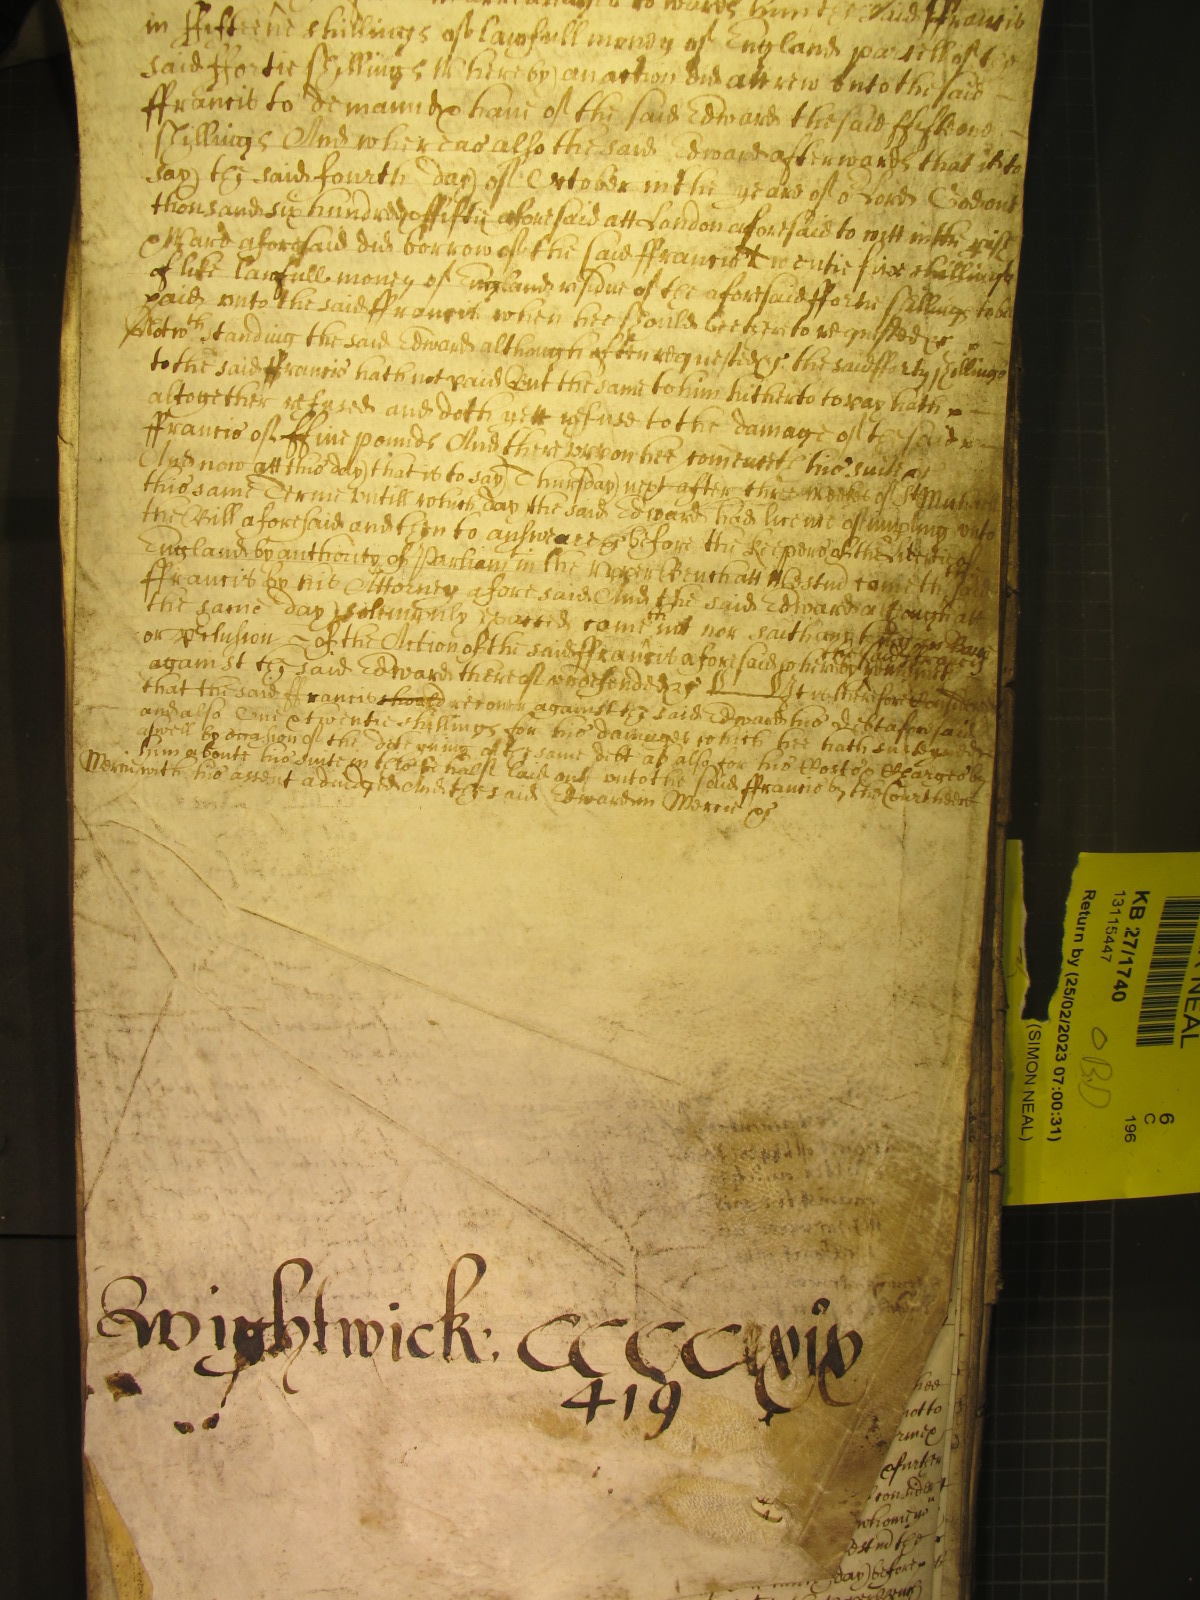 in ffifteene shillings of lawfull money of England parcell of the
said ffortie shillings Whereby an action did accrew unto the said
ffrancis to demaund & have of the said Edward the said ffifteene
shillings And whereas also the said Edward afterwards that is to
say the said fourth day of October in the yeare of or Lord God one
thousand six hundred & ffiftie aforesaid att London aforesaid to witt in the
& Ward aforesaid did borrow of the said ffrancis Twentie five shillings
of like lawfull money of England residue of the aforesaid ffortie shillings to be
paid unto the said ffrancis when hee should bee thereto requested &c
Notwth standing the said Edward although often requested &c the said fforty shillings
to the said ffrancis hath not paid But the same to him hitherto to pay hath
altogether refused and doth yett refuse to the damage of the said
ffrancis of ffive pounds And thereupon hee
And now att this day that is to say Thursday next after three weekes of St Michael
this same Terme untill which day the said Edward had licence of imparling unto
the Bill aforesaid and then to answeare &c before the keepers of the libertie of
England by authority of Parliamt in the upper Bench att Westmr come the said
ffrancis by his Attorney aforesaid And the said Edward although att
the same day solempnly exacted cometh not nor saith any thing in Barr
or preclusion of the Action of the said ffrancis aforesaid whereby
the said ffrancis
against the said Edward thereof undefended &c It is therefore Considered
that the said ffrancis should recover against the said Edward his debt aforesaid
and also One & twentie shillings for his damages which hee hath susteyned
aswell by occasion of the deteyning of the same debt as also for his Costs & Charges by
him aboute his suite in this behalf laid out unto the said ffrancis by the Court heere
Mercie
with his assent adiudged And the said Edward in Mercie &c
Wightwick: CCCCxix
419
hee
not to
consider
whome
day before
NEAL
KB 27/1740
13115447
Return by (25/02/2023 07:00:31)
(SIMON NEAL)
6
C
196